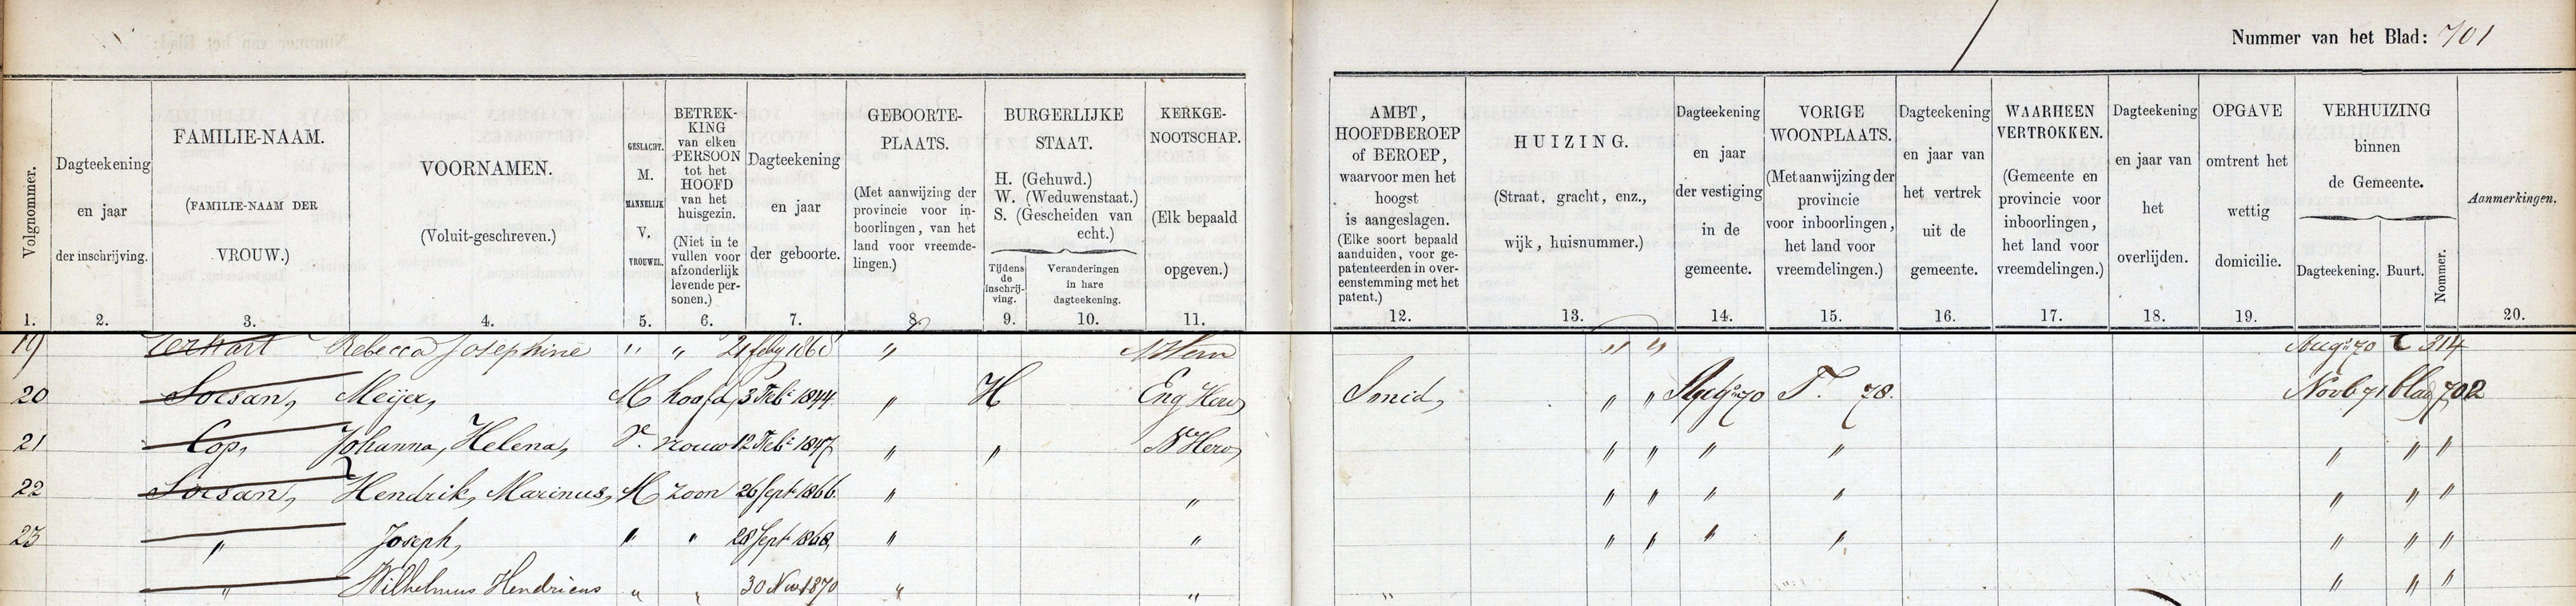 Nummer van het Blad: 701
Volgnommer.
1.
Dagteekening
en jaar
der inschrijving.
2.
FAMILIE-NAAM.
(FAMILIE-NAAM DER
VROUW.)
3.
VOORNAMEN.
(Voluit-geschreven.)
4.
GESLACHT.
M.
MANNELIJK
V.
VROUWEL.
5.
BETREK-
KING
van elken
PERSOON
tot het
HOOFD
van het
huisgezin.
(Niet in te
vullen voor
afzonderlijk
levende per-
sonen.)
6.
Dagteekening
en jaar
der geboorte.
7.
GEBOORTE-
PLAATS.
(Met aanwijzing der
provincie voor in-
boorlingen, van het
land voor vreemde-
lingen.)
8.
BURGERLIJKE
STAAT.
H. (Gehuwd.)
W. (Weduwenstaat.)
S. (Gescheiden van
echt.)
Tijdens
de
inschrij-
ving.
9.
Veranderingen
in hare
dagteekening.
10.
KERKGE-
NOOTSCHAP.
(Elk bepaald
opgeven.)
11.
AMBT,
HOOFDBEROEP
of BEROEP,
waarvoor men het
hoogst
is aangeslagen.
(Elke soort bepaald
aanduiden, voor ge-
patenteerden in over-
eenstemming met het
patent.)
12.
HUIZING.
(Straat, gracht, enz.,
wijk, huisnummer.)
13.
Dagteekening
en jaar
der vestiging
in de
gemeente.
14.
VORIGE
WOONPLAATS.
(Met aanwijzing der
provincie
voor inboorlingen,
het land voor
vreemdelingen.)
15.
Dagteekening
en jaar van
het vertrek
uit de
gemeente.
16.
WAARHEEN
VERTROKKEN.
(Gemeente en
provincie voor
inboorlingen,
het land voor
vreemdelingen.)
17.
Dagteekening
en jaar van
het
overlijden.
18.
OPGAVE
omtrent het
wettig
domicilie.
19.
VERHUIZING
binnen
de Gemeente.
Dagteekening. Buurt. Nommer.
Aanmerkingen.
20.
19 Terhart Rebecca Josephine " " 21 feby " N Herv " " Aug: 70 314
20 Socsan, Meijer, M hoofd 3 Feb: 1844 " H Eng Herv, Smid, " " Aug: 70 T. 78. Novb 71 blad 702
21 Cop, Johanna, Helena, V. vrouw 12 Feb: 1847 " " N Herv, " " " " " " "
22 Socsan, Hendrik, Marinus, M zoon 26 Sept 1866. " " " " " " " " "
23 " Joseph, " " 28 Sept 1868, " " " " " " " " "
" Wilhelmus Hendricus " " 30 Nov 1870 " " " " " "